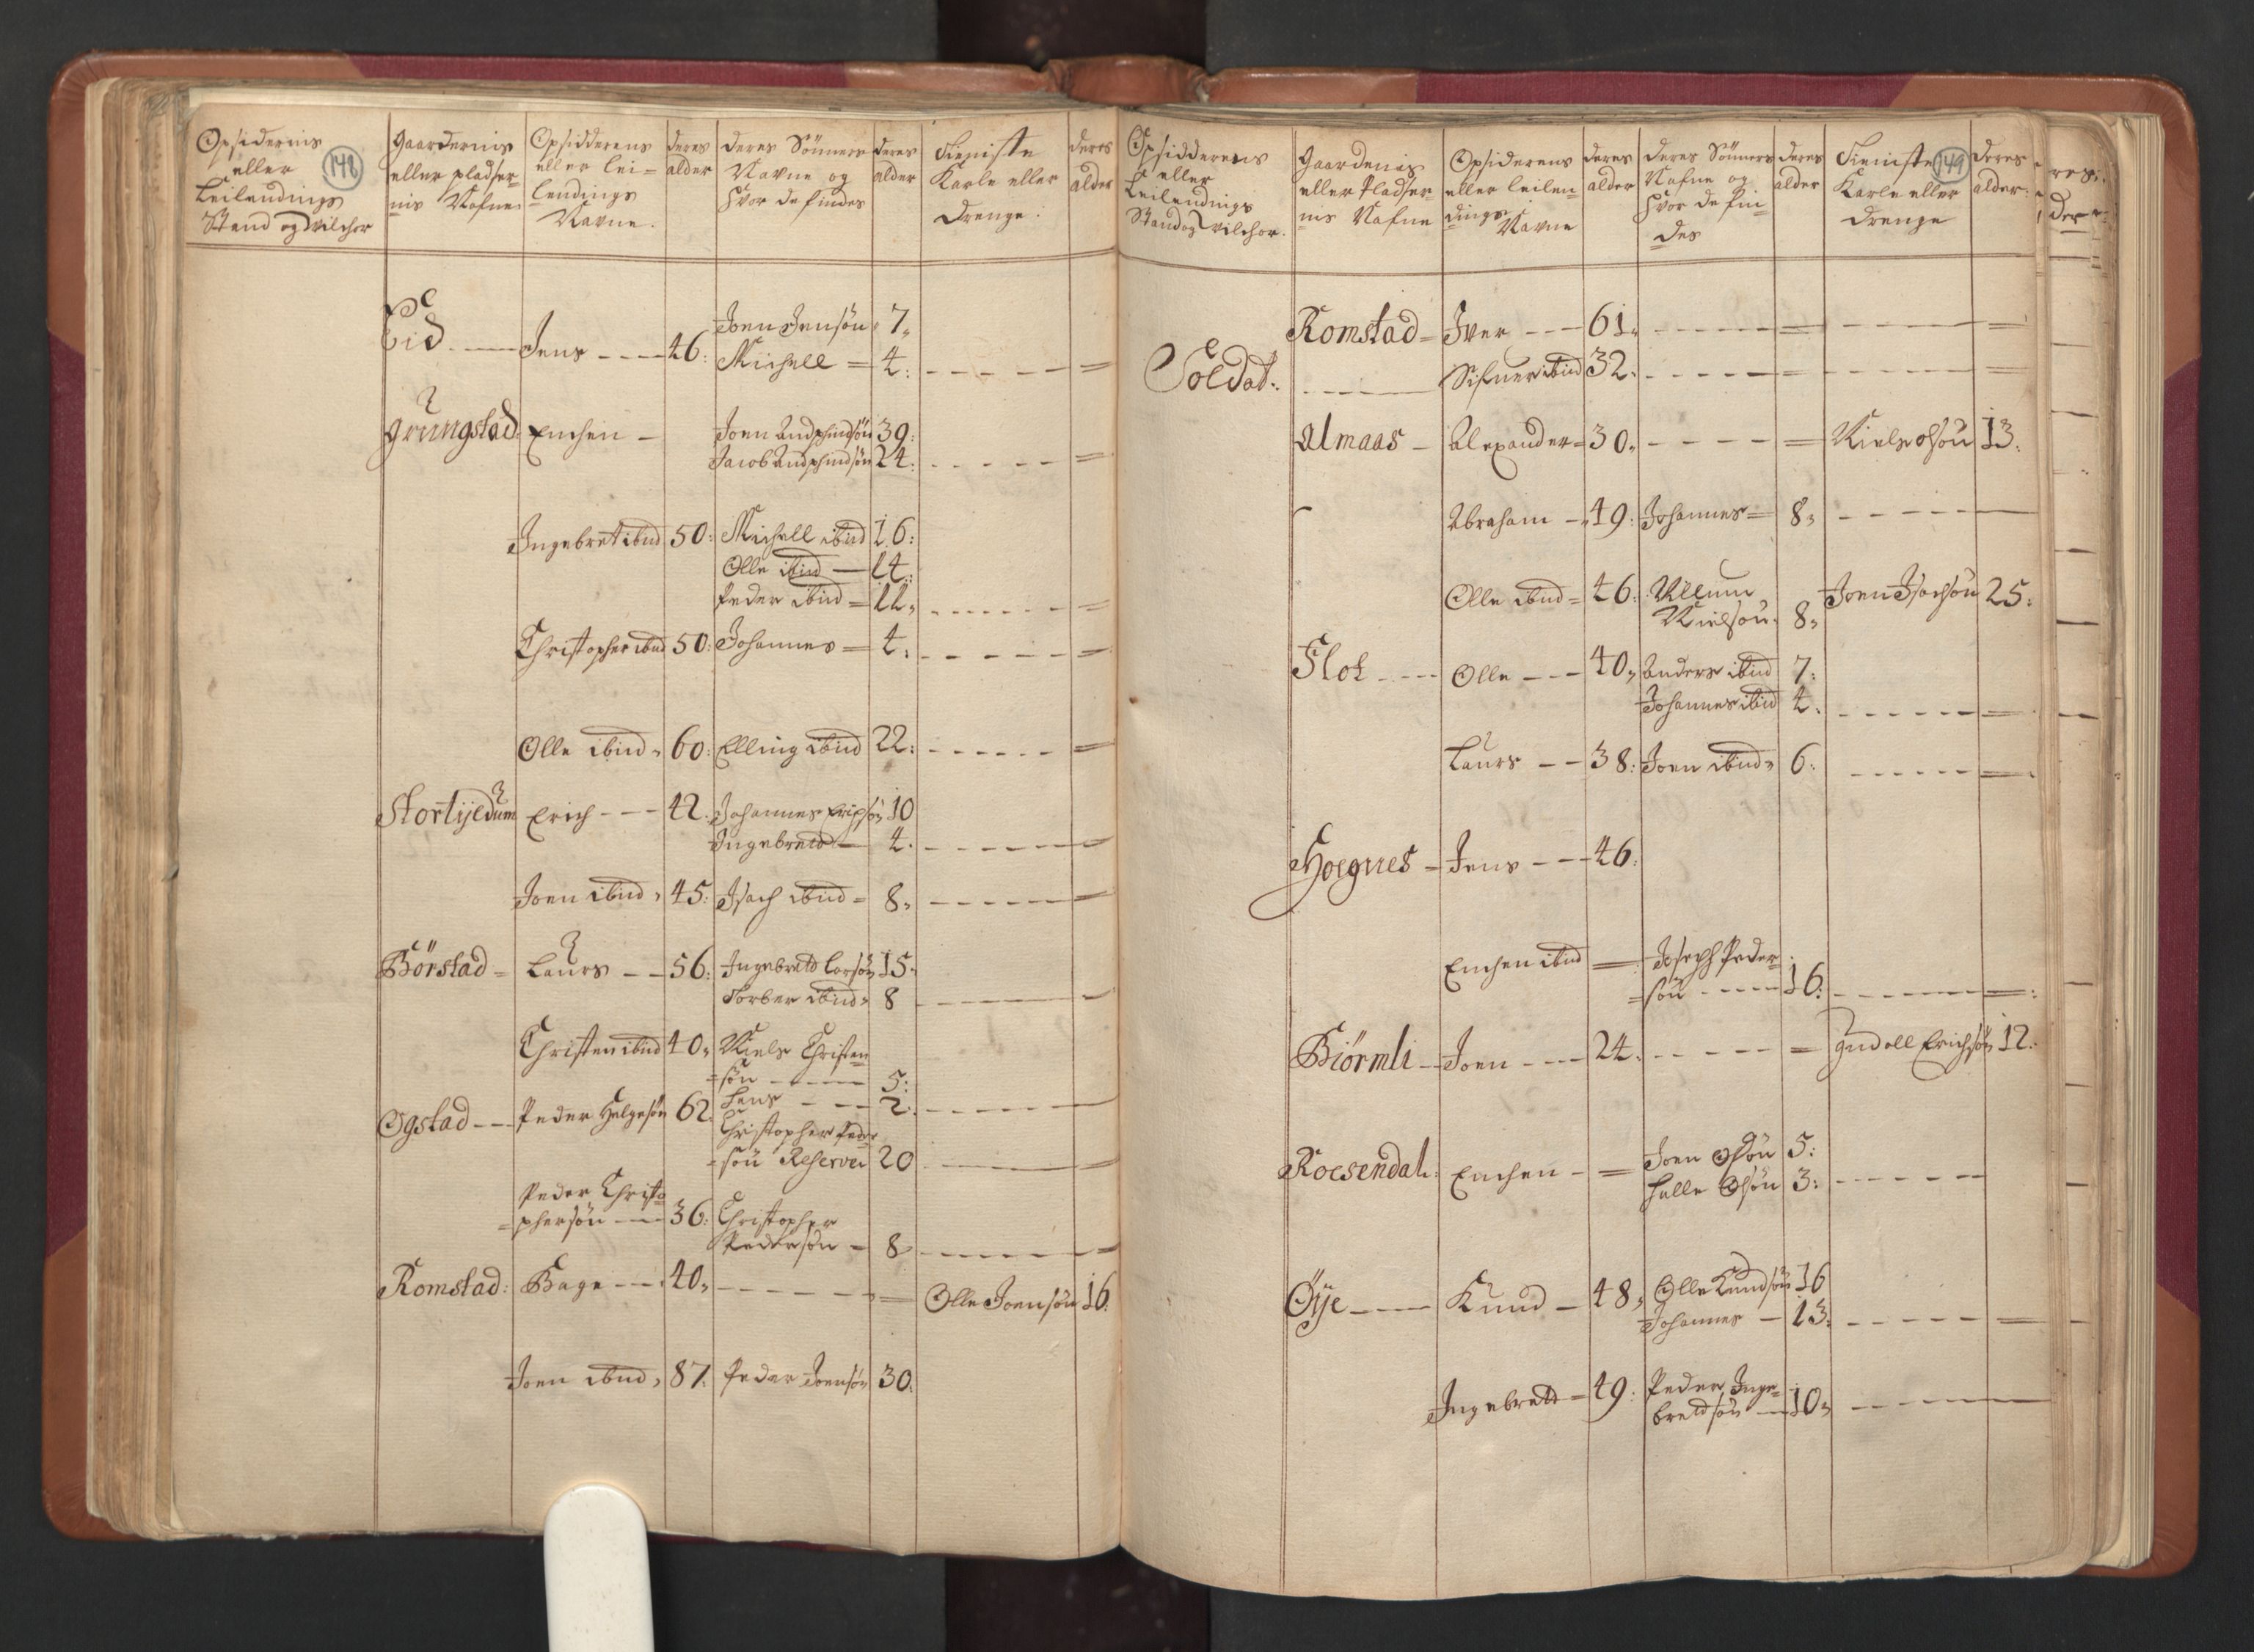 Opsidernis
eller
Leilendings
Stand og vilchor
148
Gaardernis
eller pladser-
nis Nafne
Opsidderens
eller lei=
lendings
Navne.
deres
alder
deres Sönners
Navne og
hvor de findes
deres
alder
Tieniste
Karle eller
drenge:
deres
alder
Eid Jens 46: Joen Jensön 7,
Michell = 4: =
Grungstad Enchen Joen 39:
Jacob 24: =
Ingebret ibid 50: Michell ibid 16:
Olle ibid 14:
Peder ibid = 11, =
Christopher ibid 50: Johannes = 4: =
Olle ibid 60: Elling ibid 22: =
Erich 42: Johannes Erichsön 10
Ingebretd 4:
Joen ibid 45: Isach ibid = 8,
Börstad = Laurs 56: Ingebretd Larsön 15:
Torber ibid 8
Christen ibid 40, Niels Christen
=sön 5:
Jens 2:
Ogstad Peder Helgesön 62 Christopher Peder
=sön Reserve 20
Peder Christo
=phersön 36: Christopher
Pedersön = 8
Romstad: Bage 40, = Olle Joensön 16:
Joen ibid 87: Peder Joensön 30:
Opsidderens
eller
Leilendings
Stand og vilchor.
Gaardenis
eller Pladser-
nis Nafne
Opsiderens
eller leilen=
dings
Navne
deres
alder
deres Sönners
Nafne og
hvor de fin=
des
deres
alder
Tieniste
Karle eller
drenge
149
deres
alder:
Romstad = Iver 61, = =
Soldat: Sifuer ibid 32: = =
Almaas Alexander = 30, = Niels Olsön 13:
Abraham 49: Johannes = 8,
Olle ibid = 46: Villum
Nielsön 8, Joen Isachsön 25:
Flot Olle 40, Anders ibid 7:
Johannes ibid 4: =
Laurs 38: Joen ibid 6: =
Hoegnes = Jens 46:
Enchen ibid = Joseph Peder=
=sön 16: =
Biörmli Joen 24: = Gudoll Erichsön 12:
Roesendal: Enchen = Joen Olsön 5:
Halle Olsön 3:
Öye Knud 48, Olle Knudsön 16
Johannes 13: =
Ingebrett = 49: Peder Inge=
bretdsön 10,